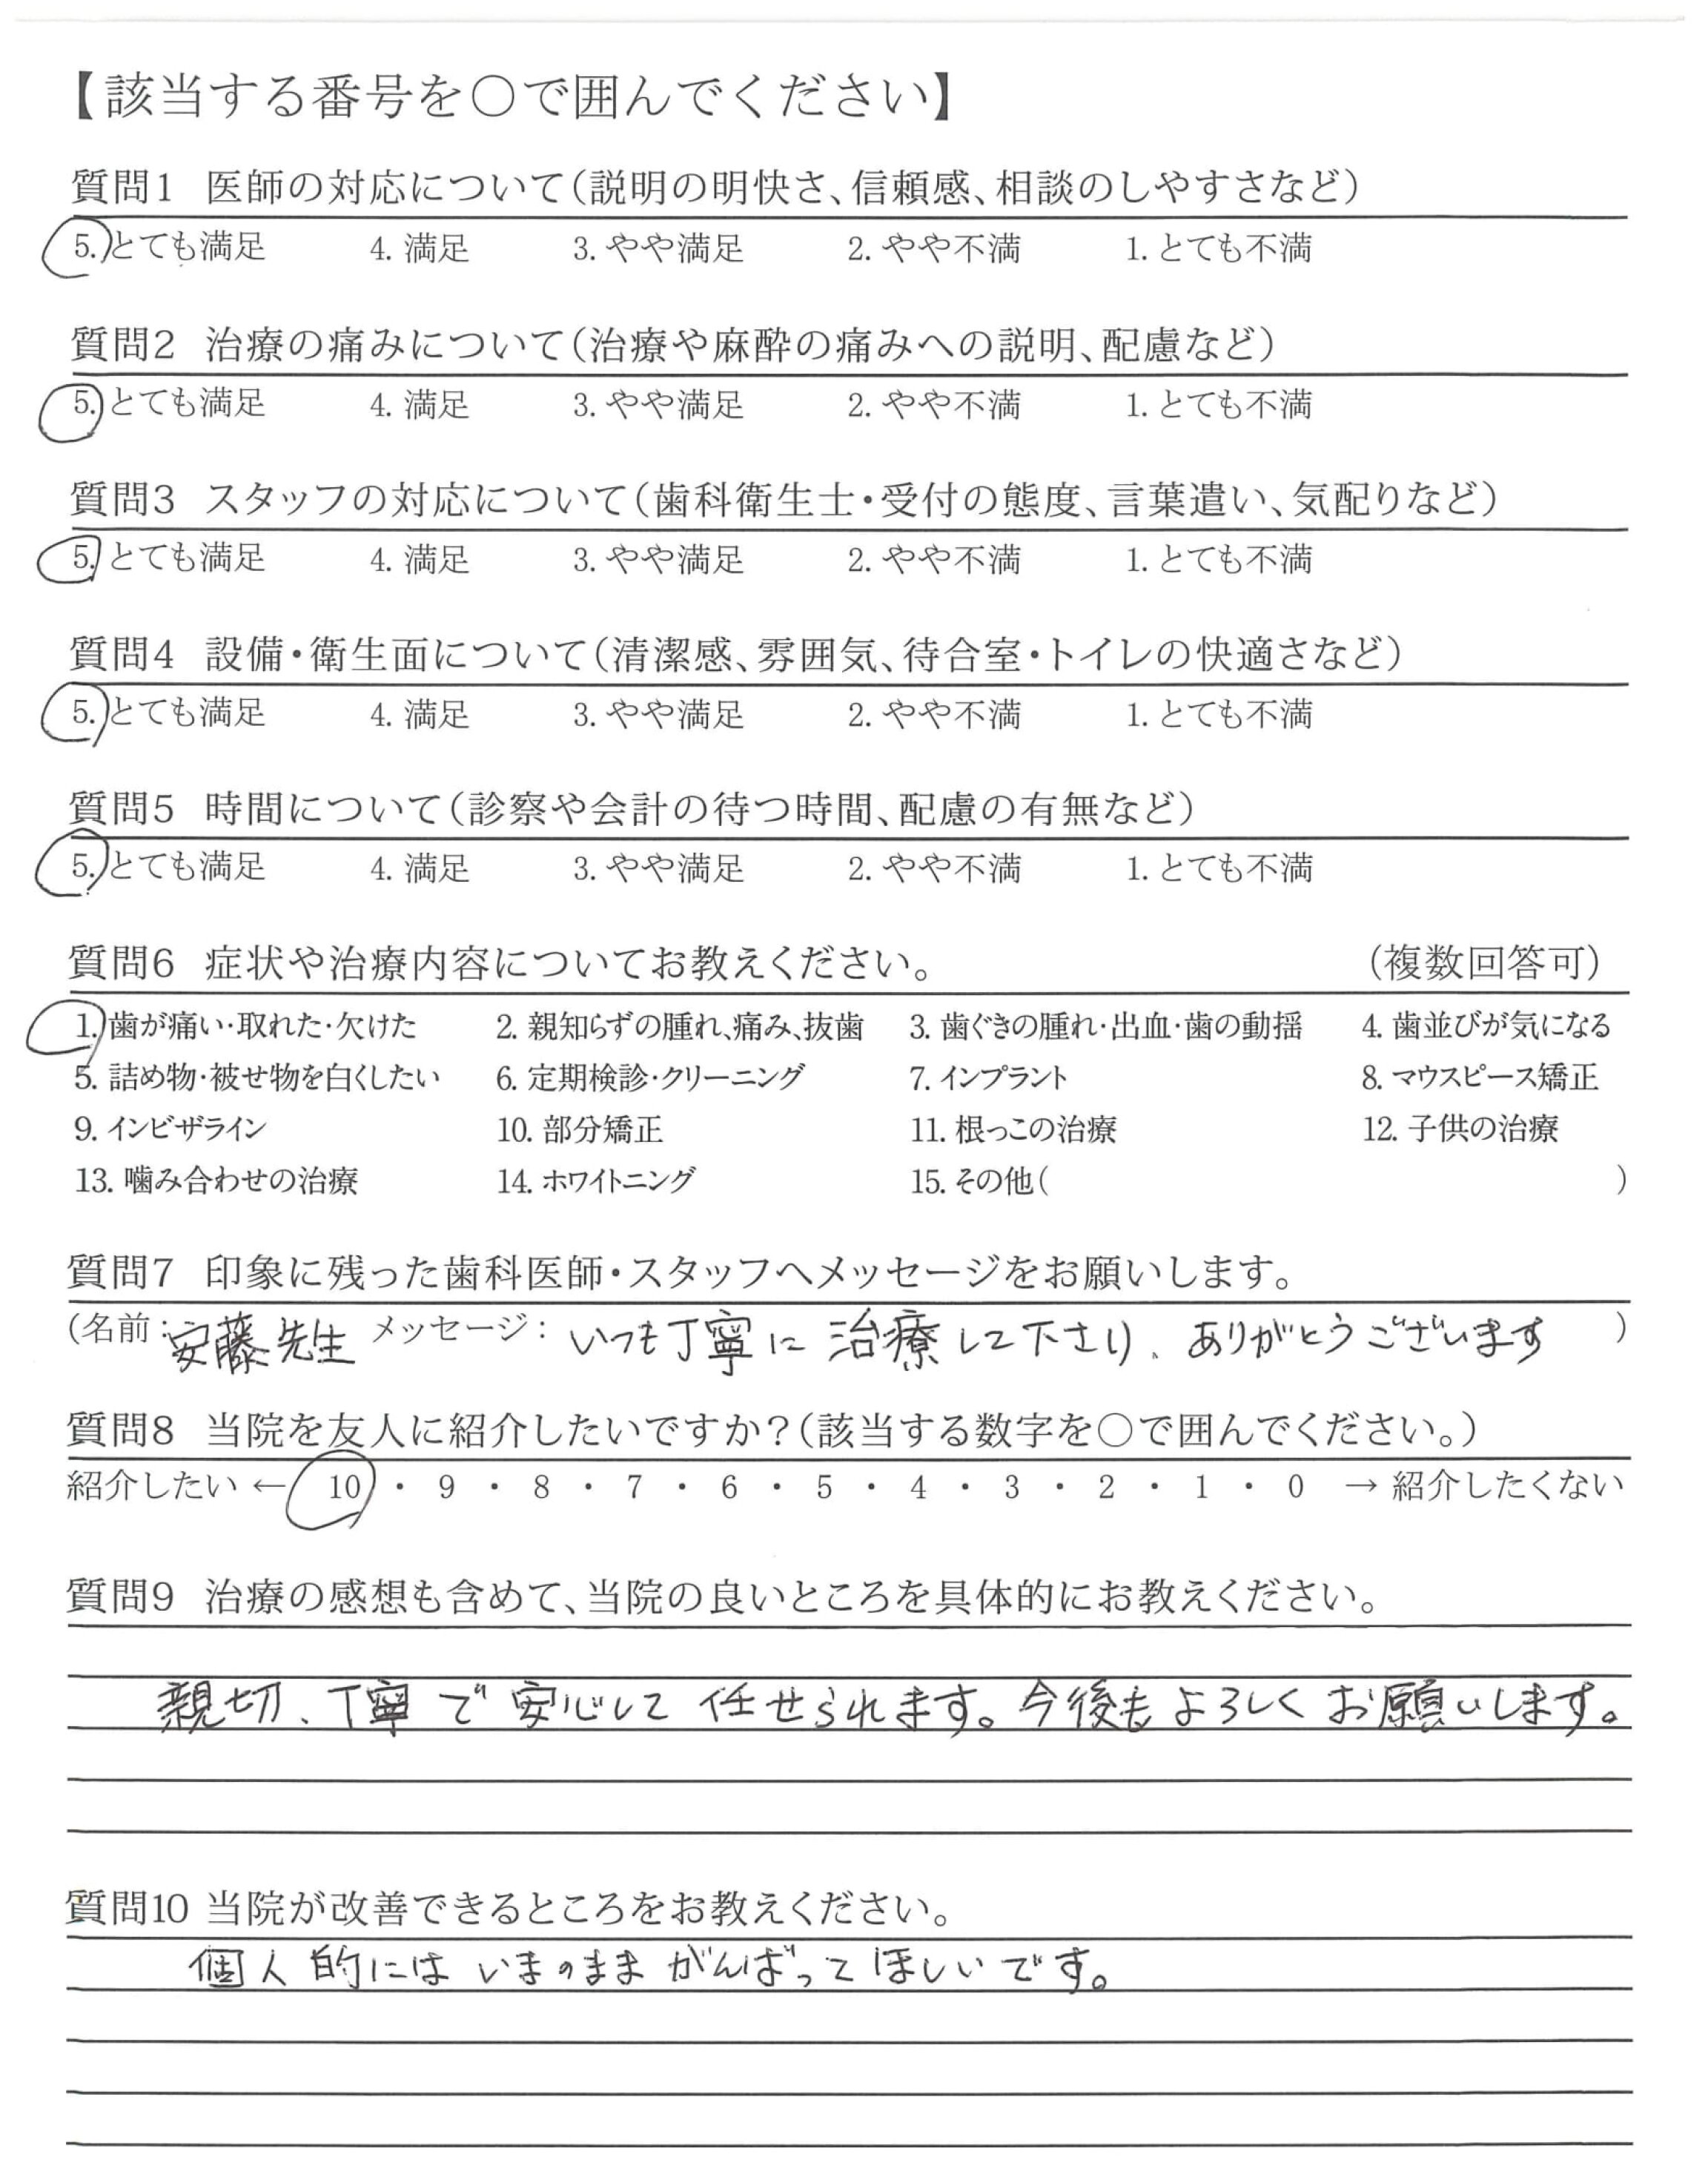 【該当する番号を○で囲んでください】
質問1 医師の対応について(説明の明快さ、信頼感、相談のしやすさなど)
5. とても満足 4. 満足 3. やや満足 2. やや不満 1. とても不満
質問2 治療の痛みについて(治療や麻酔の痛みへの説明、配慮など)
5. とても満足 4. 満足 3. やや満足 2. やや不満 1. とても不満
質問3 スタッフの対応について(歯科衛生士・受付の態度、言葉遣い、気配りなど)
5. とても満足 4. 満足 3. やや満足 2. やや不満 1. とても不満
質問4 設備・衛生面について(清潔感、雰囲気、待合室・トイレの快適さなど)
5. とても満足 4. 満足 3. やや満足 2. やや不満 1. とても不満
質問5 時間について(診察や会計の待つ時間、配慮の有無など)
5. とても満足 4. 満足 3. やや満足 2. やや不満 1. とても不満
質問6 症状や治療内容についてお教えください。 (複数回答可)
1. 歯が痛い・取れた・欠けた 2. 親知らずの腫れ、痛み、抜歯 3. 歯ぐきの腫れ・出血・歯の動揺 4. 歯並びが気になる
5. 詰め物・被せ物を白くしたい 6. 定期検診・クリーニング 7. インプラント 8. マウスピース矯正
9. インビザライン 10. 部分矯正 11. 根っこの治療 12. 子供の治療
13. 噛み合わせの治療 14. ホワイトニング 15. その他( )
質問7 印象に残った歯科医師・スタッフへメッセージをお願いします。
(名前:安藤先生 メッセージ:いつも丁寧に治療して下さり、ありがとうございます )
質問8 当院を友人に紹介したいですか?(該当する数字を○で囲んでください。)
紹介したい ← 10 ・ 9 ・ 8 ・ 7 ・ 6 ・ 5 ・ 4 ・ 3 ・ 2 ・ 1 ・ 0 → 紹介したくない
質問9 治療の感想も含めて、当院の良いところを具体的にお教えください。
親切、丁寧で安心して任せられます。今後もよろしくお願いします。
質問10 当院が改善できるところをお教えください。
個人的にはいまのままがんばってほしいです。